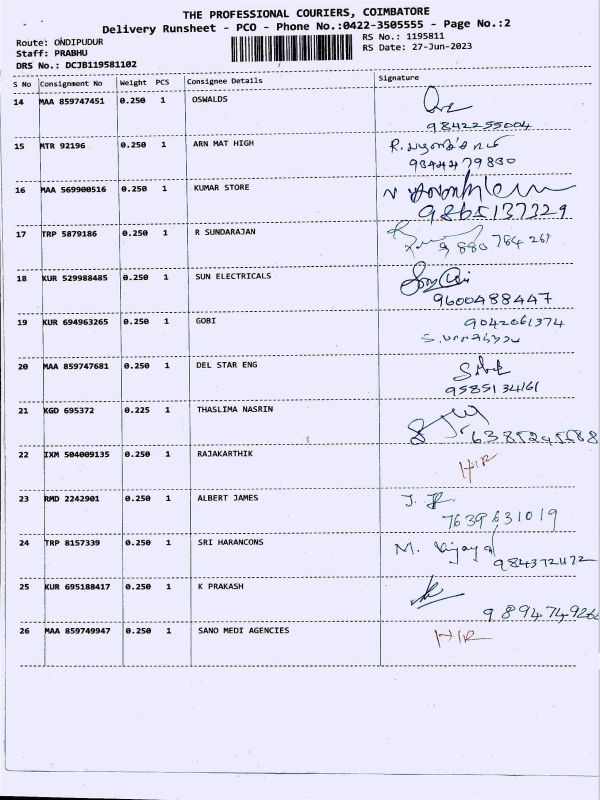 THE PROFESSIONAL COURIERS, COIMBATORE
Delivery Runsheet - PCO - Phone No.:0422-3505555 - Page No.:2
Route: ONDIPUDUR
RS No.: 1195811
Staff: PRABHU
RS Date: 27-Jun-2023
DRS No.: DCJB119581102
S No Consignment No Weight PCS Consignee Details Signature
14 MAA 859747451 0.250 1 OSWALDS
9842255004
15 MTR 92196 0.250 1 ARN MAT HIGH R.
9344479830
16 MAA 569900516 0.250 1 KUMAR STORE
9865137329
17 TRP 5879186 0.250 1 R SUNDARAJAN
9 880 784 261
18 KUR 529988485 0.250 1 SUN ELECTRICALS
9600488447
19 KUR 694963265 0.250 1 GOBI 9042061374
20 MAA 859747681 0.250 1 DEL STAR ENG
9585134161
21 KGD 695372 0.225 1 THASLIMA NASRIN
6385245688
22 IXM 504009135 0.250 1 RAJAKARTHIK
HIR
23 RMD 2242901 0.250 1 ALBERT JAMES
7639631019
24 TRP 8157339 0.250 1 SRI HARANCONS M. Vijaya
25 KUR 695188417 0.250 1 K PRAKASH
26 MAA 859749947 0.250 1 SANO MEDI AGENCIES HIR